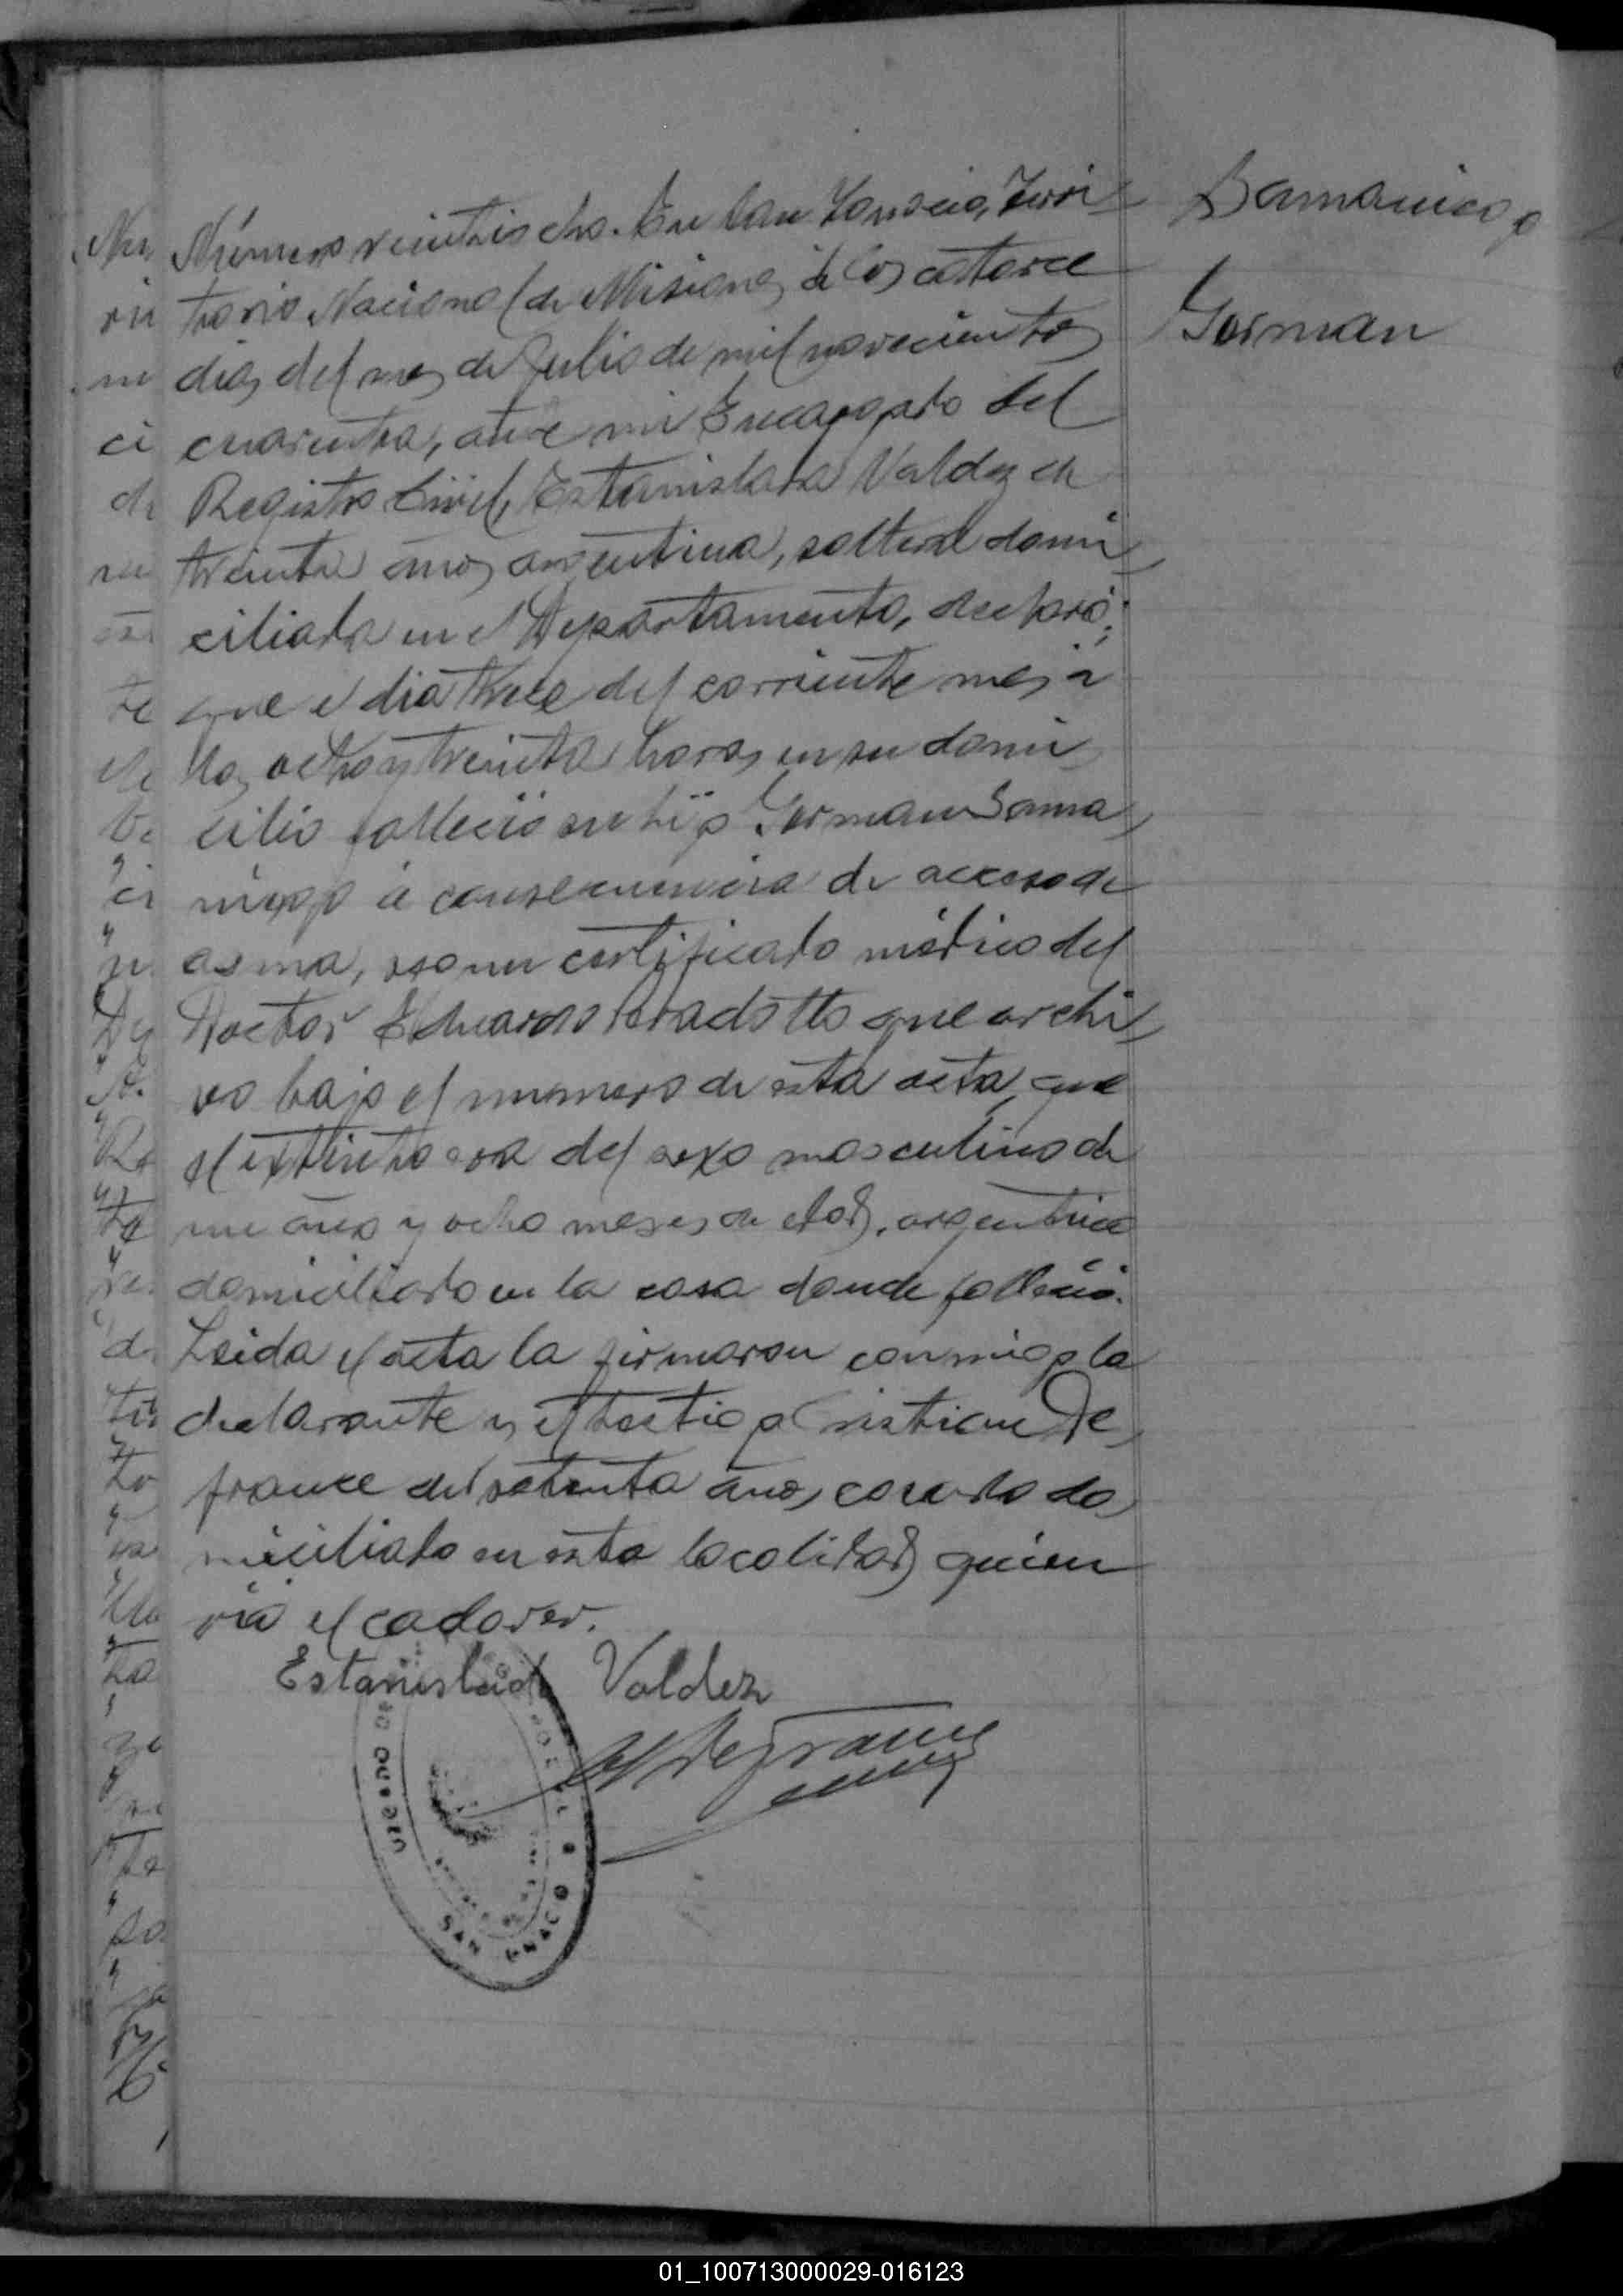 Número veintiocho. En San Ignacio, Terri-
torio Nacional de Misiones, á los catorce
dias del mes de Julio de mil novecientos
cuarenta, ante mi Encargado del
Registro Civil, Estanislada Valdez de
treinta años argentina, soltera domi-
ciliada en el Departamento, declaró:
que el dia trece del corriente mes á
las ocho y treinta horas en su domi-
cilio falleció su hijo German
á consecuencia de acceso de
asma, segun certificado médico del
Doctor Eduardo que archi-
vo bajo el numero de esta acta, que
el extinto era del sexo masculino de
un año y ocho meses de edad, argentino
domiciliado en la casa donde falleció.
Leida el acta la firmaron conmigo la
declarante y el testigo Cristian De-
france de setenta años, casado do-
miciliado en esta localidad quien
vió el cadaver.
Estanislada Valdez
Defrance
SAN IGNACIO
German
01_100713000029-016123